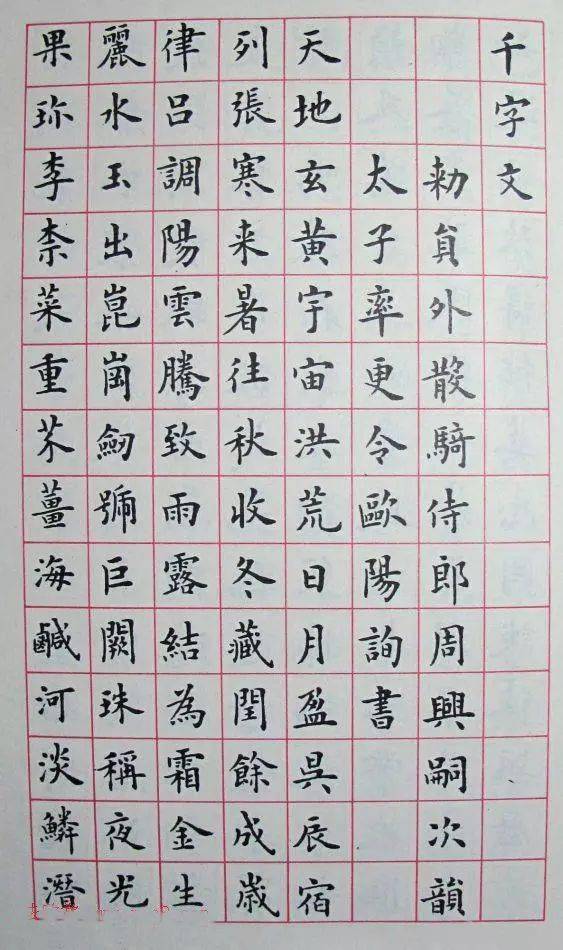 千字文
勅員外散騎侍郎周興嗣次韻
太子率更令歐陽詢書
天地玄黄宇宙洪荒日月盈昃辰宿
列張寒来暑往秋收冬藏閏餘成歲
律吕調陽雲騰致雨露結為霜金生
麗水玉出崑崗劒號巨闕珠稱夜光
果珎李柰菜重芥薑海鹹河淡鱗潛